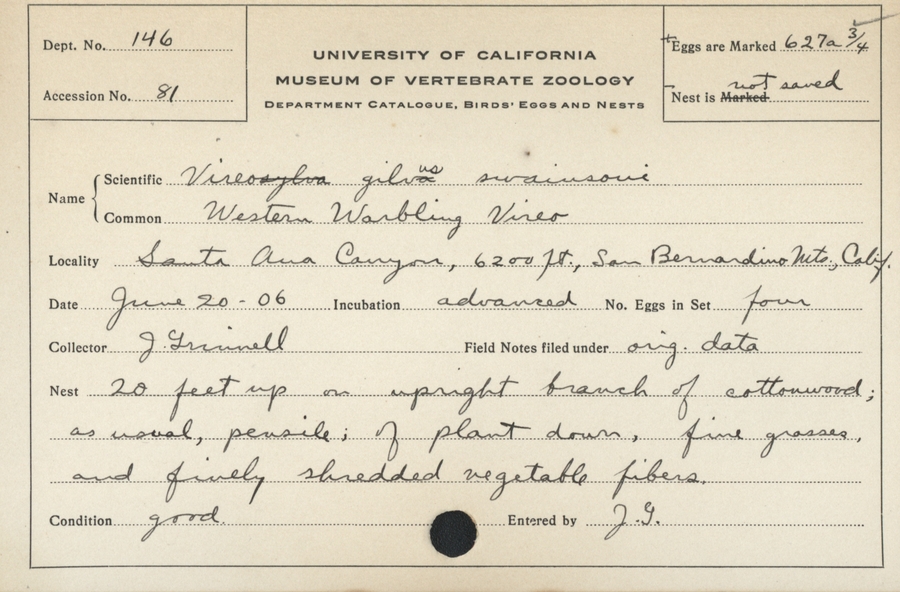 Dept. No. 146
Accession No. 81
UNIVERSITY OF CALIFORNIA
MUSEUM OF VERTEBRATE ZOOLOGY
DEPARTMENT CATALOGUE, BIRDS' EGGS AND NESTS
Eggs are Marked 627a 3/4
Nest is Marked not saved
Name
Scientific Vireosylva gilvaus swainsoni
Common Western Warbling Vireo
Locality Santa Ana Canyon, 6200 ft., San Bernardino Mts., Calif.
Date June 20-06 Incubation advanced No. Eggs in Set four
Collector J. Grinnell Field Notes filed under orig. data
Nest 20 feet up on upright branch of cottonwood;
as usual, pensile; of plant down, fine grasses,
and finely shredded vegetable fibers.
Condition good. Entered by J.G.